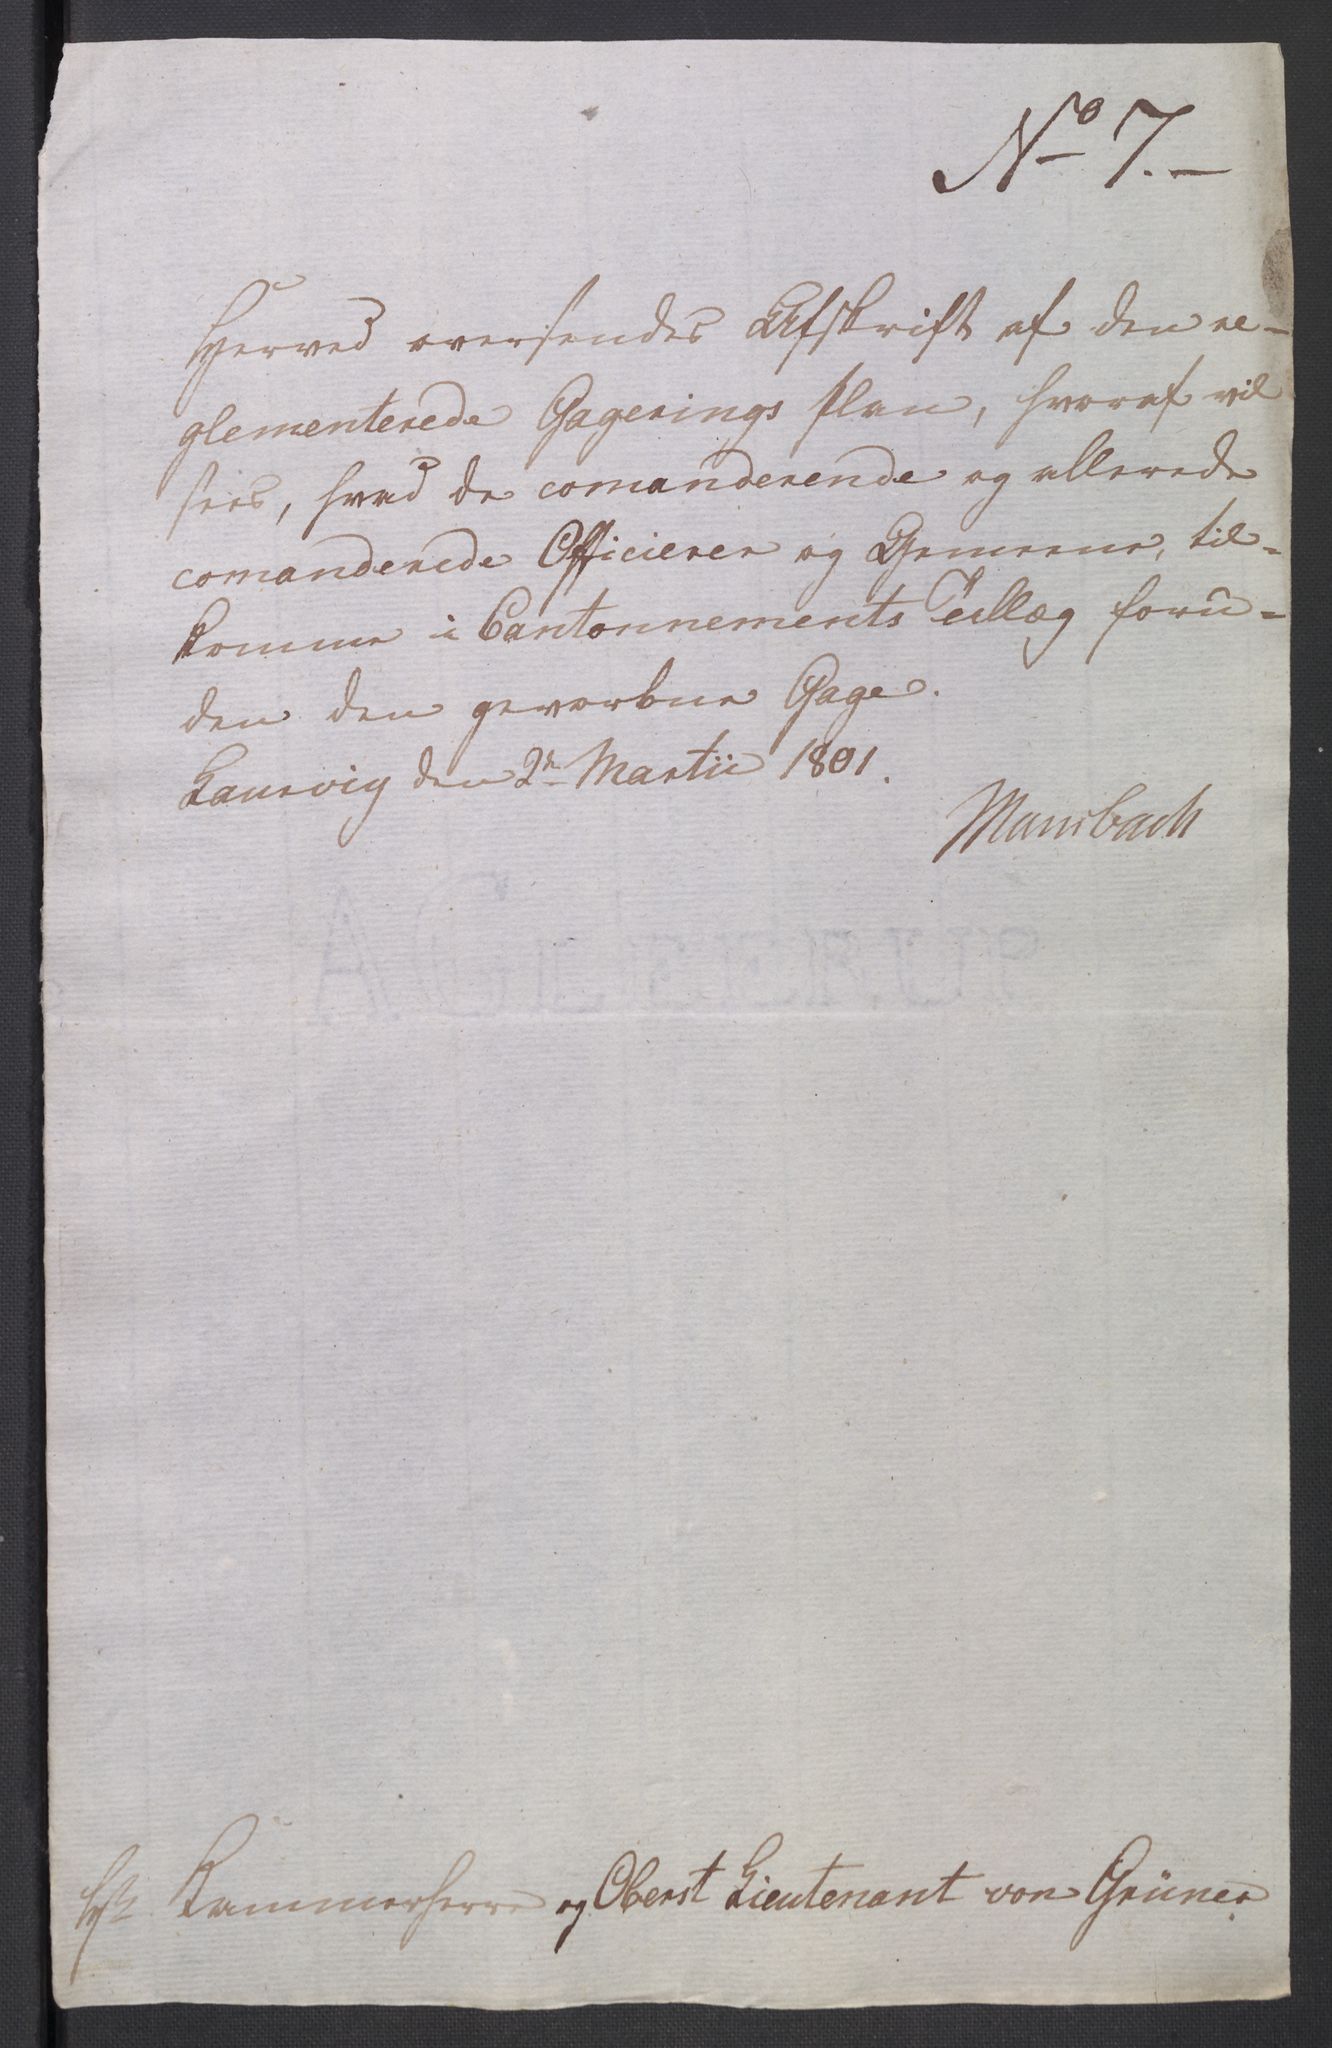 No 7.
Herved oversendes Afskrift af den re-
glementerede Gagerings Plan, hvoraf vil
sees, hvad de comanderende og allerede
comanderede Officierer og Gemeene, til-
komme i Cantonnements Tillæg foru-
den den gevorbne Gage.
Laurvig den 2n Martii 1801.
Mansbach
Hr Kammerherre og Oberst Lieutenant von Grüner